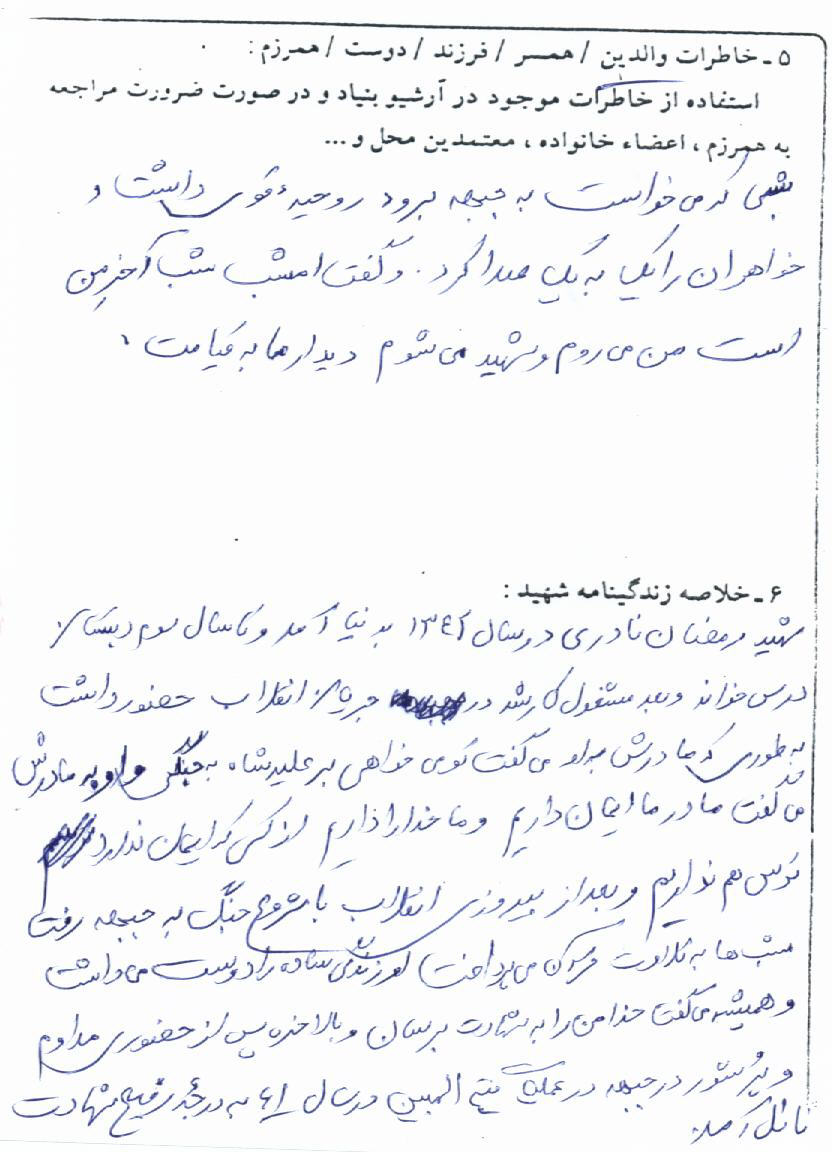 ۵ ـ خاطرات والدین / همسر / فرزند / دوست / همرزم :
استفاده از خاطرات موجود در آرشیو بنیاد و در صورت ضرورت مراجعه
به همرزم ، اعضاء خانواده ، معتمدین محل و ...
شبی که می‌خواست به جبهه برود روحیهٔ قوی داشت و
خواهران را یک به یک صدا کرد . و گفت امشب شب آخر من
است من می روم و شهید می شوم دیدار ما به قیامت
۶ ـ خلاصه زندگینامه شهید :
شهید رمضان نادری در سال ۱۳۴۲ به دنیا آمد و تا سال سوم دبستان
درس خواند و بعد مشغول کار شد در جریان انقلاب حضور داشت
به طوری که مادرش به او می گفت تو می خواهی بر علیه شاه بجنگی و او به مادرش
می گفت مادر ما ایمان داریم و ما خدا را داریم از کسی که ایمان ندارد
ترس هم نداریم و بعد از پیروزی انقلاب با شروع جنگ به جبهه رفت
شب ها به تلاوت قرآن می پرداخت او زندگی ساده را دوست می داشت
و همیشه می گفت خدا من را به شهادت برسان و بالاخره پس از حضوری مداوم
و پر شور در جبهه در عملیات فتح المبین در سال ۶۱ به درجه رفیع شهادت
نائل آمد.